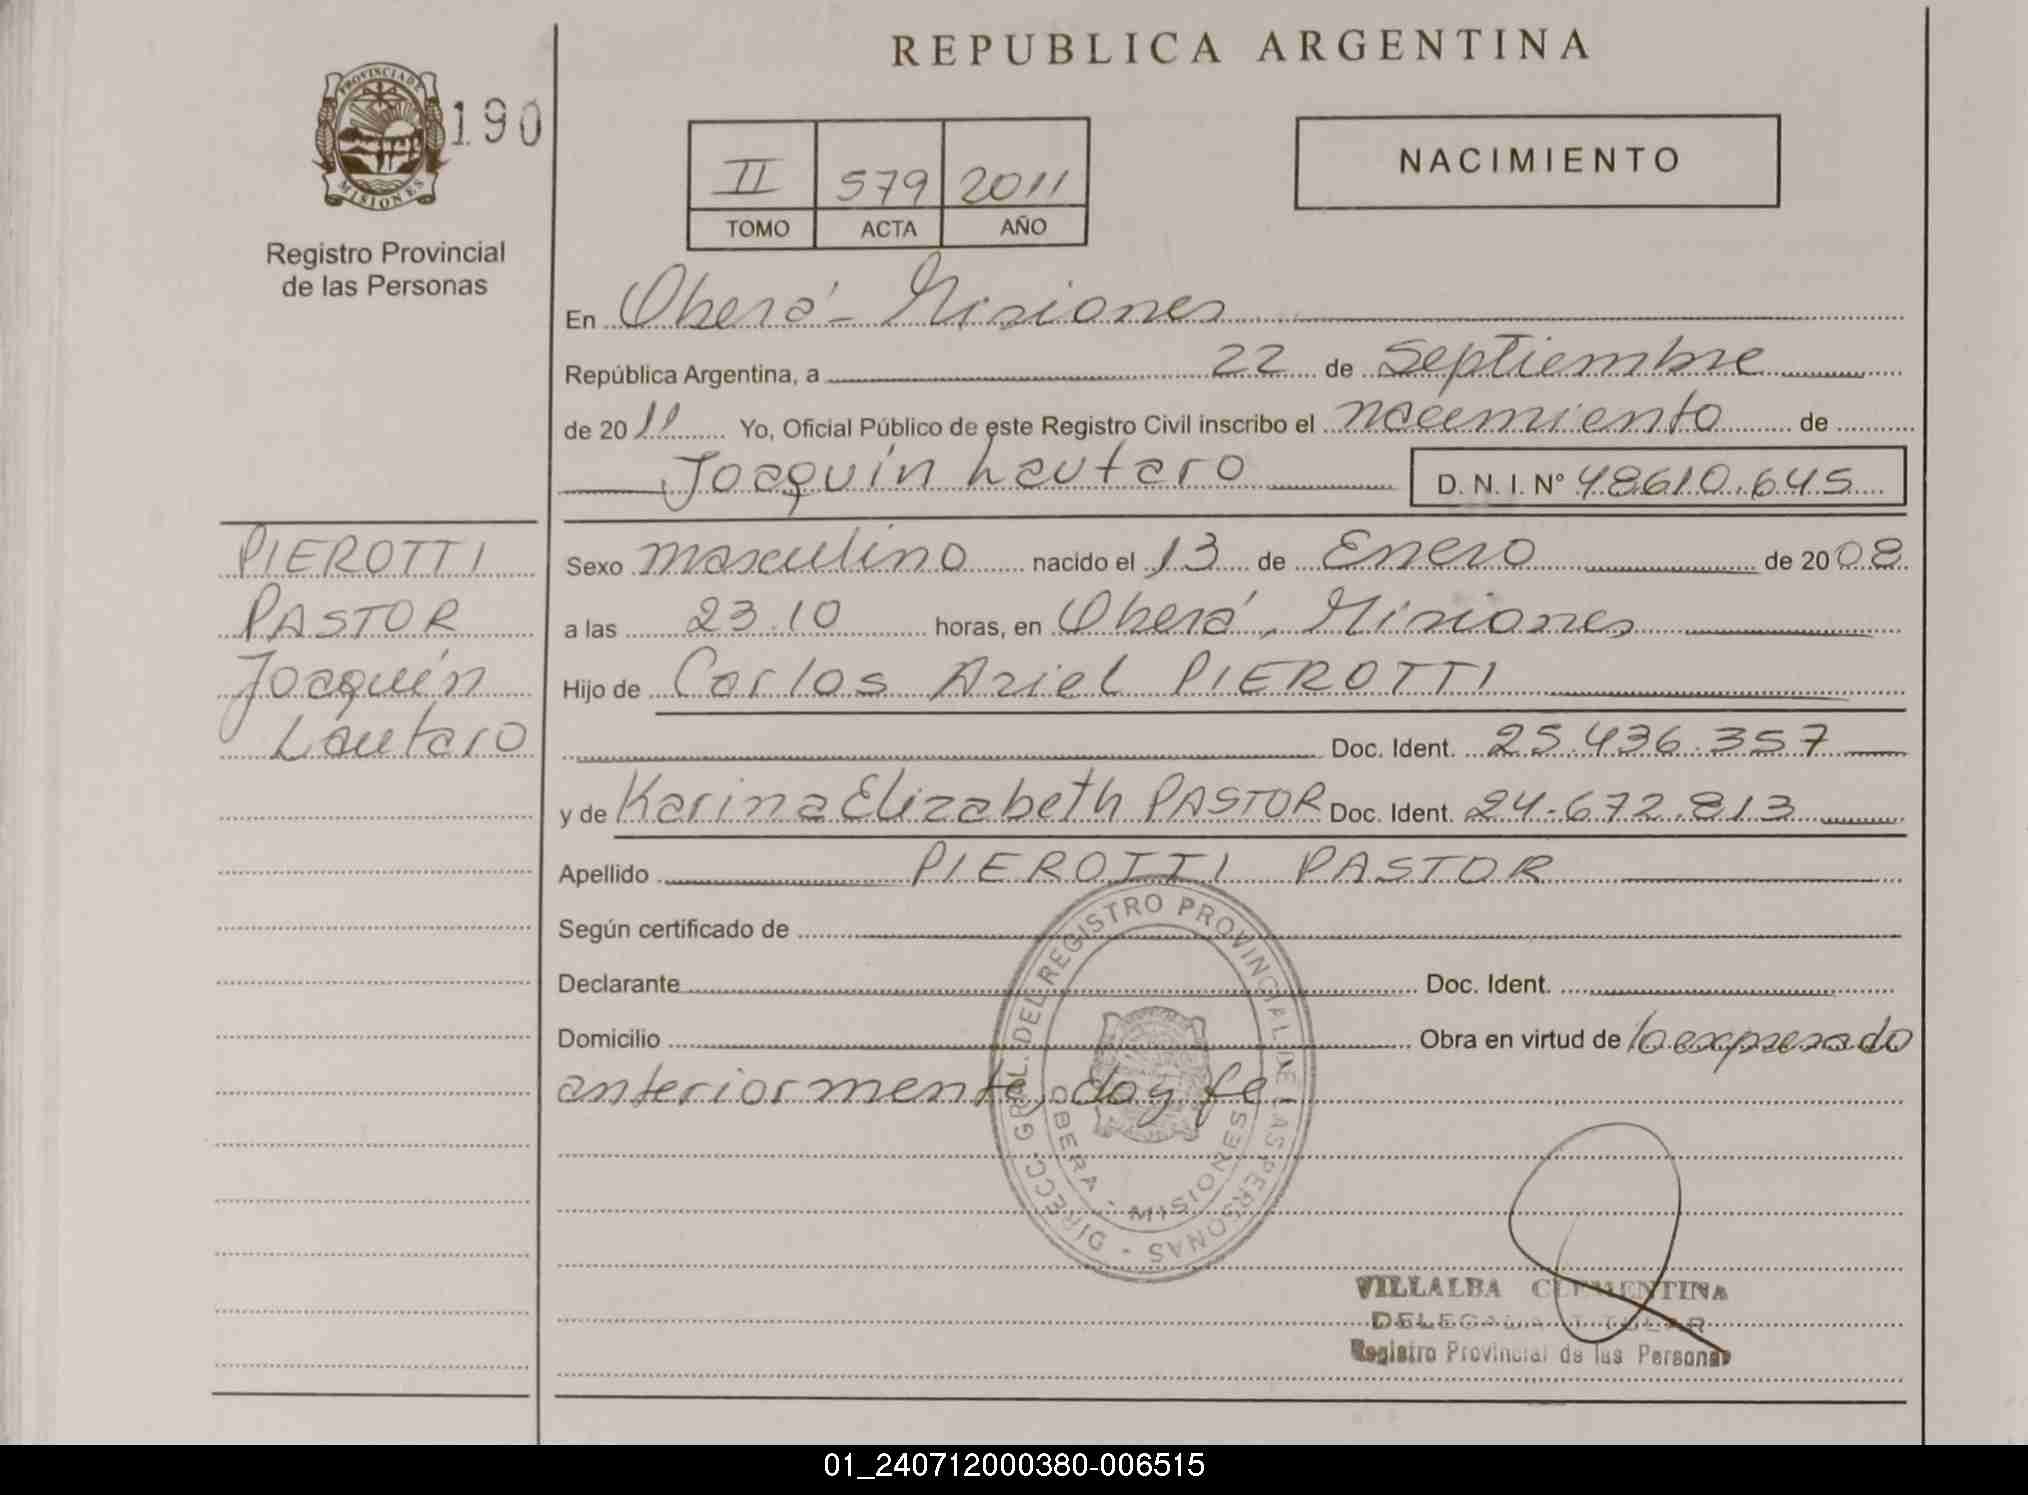 REPUBLICA ARGENTINA
PROVINCIA DE
MISIONES
190
Registro Provincial
de las Personas
II 579 2011
TOMO ACTA AÑO
NACIMIENTO
En Oberá - Misiones
República Argentina, a 22 de Septiembre
de 2011 Yo, Oficial Público de este Registro Civil inscribo el nacimiento de
Joaquín Lautaro D. N. I. Nº 48.610.645
PIEROTTI
PASTOR
Joaquín
Lautaro
Sexo masculino nacido el 13 de Enero de 2008
a las 23.10 horas, en Oberá, Misiones
Hijo de Carlos Ariel PIEROTTI
Doc. Ident. 25.436.357
y de Karina Elizabeth PASTOR Doc. Ident. 24.672.813
Apellido PIEROTTI PASTOR
Según certificado de
Declarante Doc. Ident.
Domicilio Obra en virtud de lo expresado
anteriormente, doy fe
DIRECC. GRAL. DEL REGISTRO PROVINCIAL DE LAS PERSONAS -
OBERA - MISIONES
VILLALBA CLEMENTINA
DELEGADA TITULAR
Registro Provincial de las Personas
01_240712000380-006515